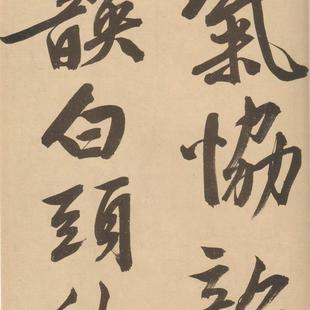 氣協
韺白頭